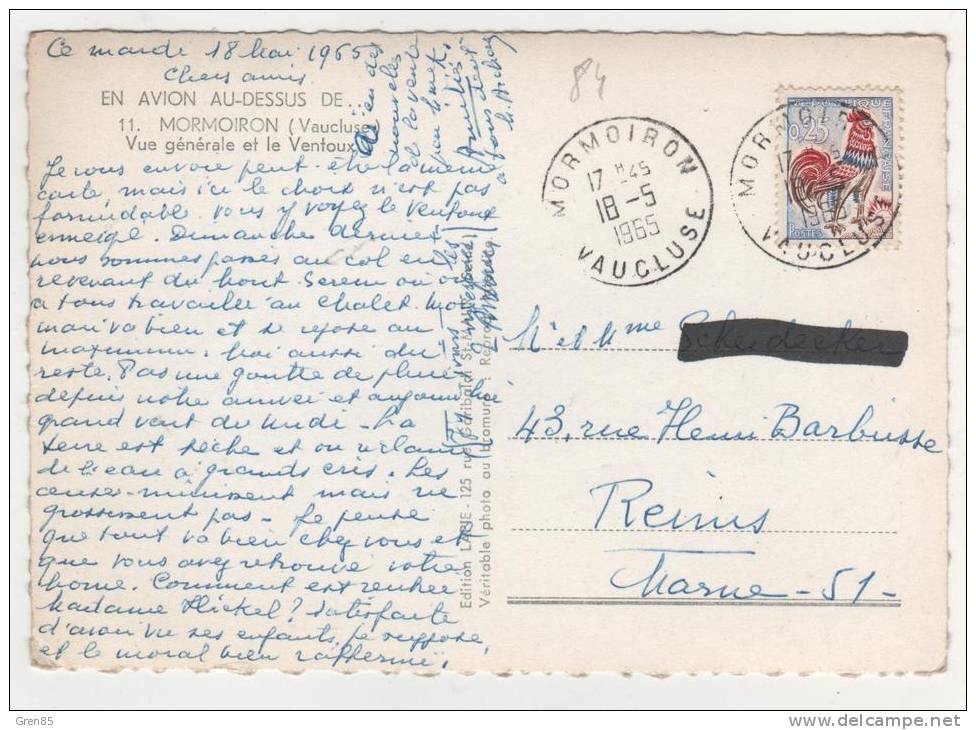 Ce mardi 18 Mai 1965
Chers amis
EN AVION AU-DESSUS DE...
11. MORMOIRON (Vaucluse)
Vue générale et le Ventoux
Je vous envoie peut-être la même
carte, mais ici le choix n'est pas
formidable. Vous y voyez le Ventoux
enneigé. Dimanche dernier
nous sommes passés au col en
revenant du Mont Serein où on
a tous travaillé au chalet. Mon
mari va bien et se repose au
maximum. Moi aussi du
reste. Pas une goutte de pluie
depuis notre arrivée et aujourd'hui
grand vent du Midi. La
terre est sèche et on réclame
de l'eau à grands cris. Les
cerises mûrissent mais ne
grossissent pas. Je pense
que tout va bien chez vous et
que vous avez retrouvé votre
home. Comment est rentrée
Madame Hickel? Satisfaite
d'avoir vu ses enfants je suppose
et le moral bien raffermi.
des
nouvelles
de la vente
Amitiés
à tous deux
Edition LAPIE - 125 rue Garibaldi St-
Véritable photo au bromure - Repro
84
MORMOIRON
17 H45
18-5
1965
VAUCLUSE
REPUBLIQUE FRANÇAISE
0,25
POSTES
MORMOIRON
17
1965
VAUCLUSE
M et Mme Scheidecker
43, rue Henri Barbusse
Reims
Marne - 51 -
Gren85